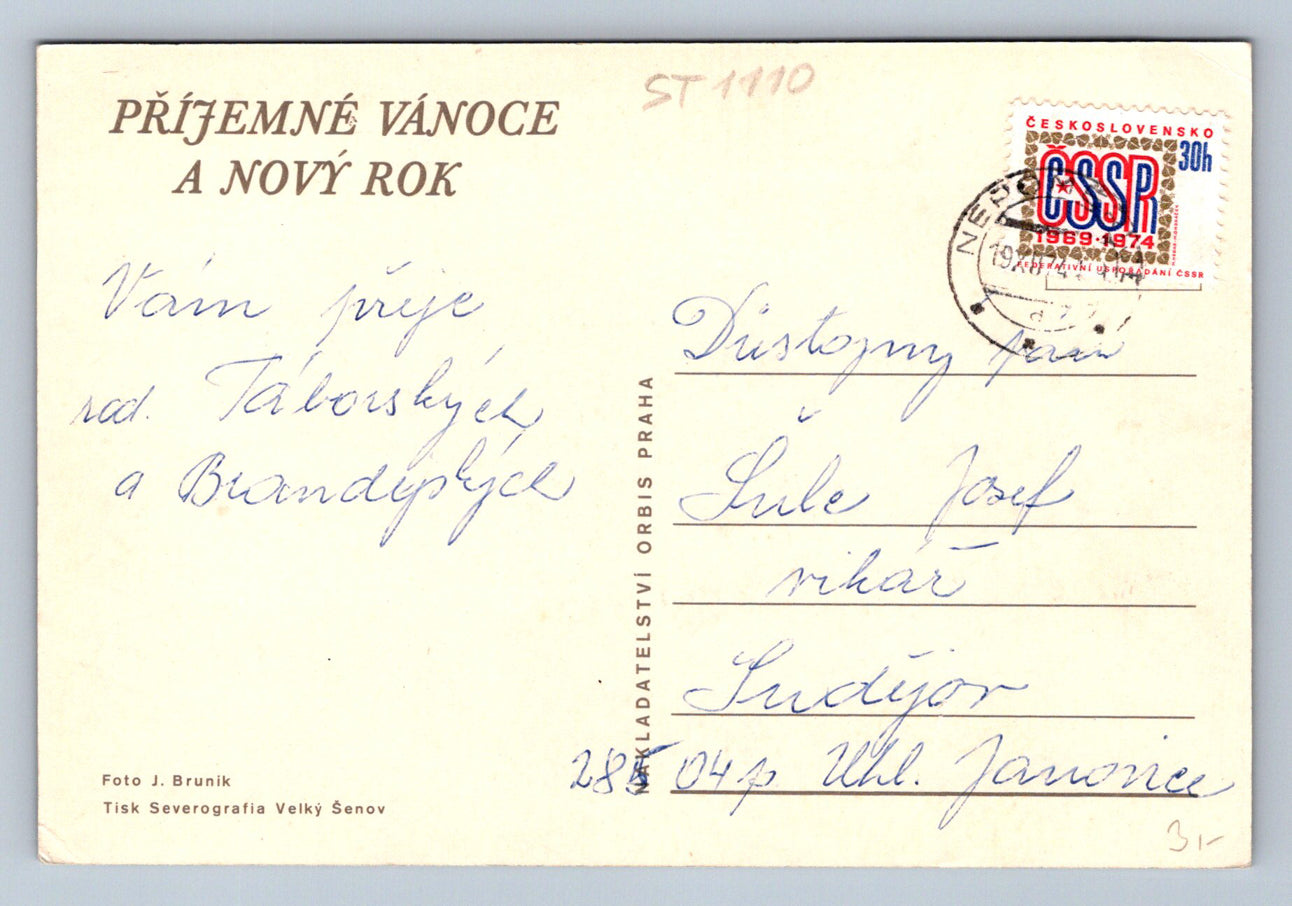 PŘÍJEMNÉ VÁNOCE
A NOVÝ ROK
ST 1110
ČESKOSLOVENSKO
30h
ČSSR
1969·1974
FEDERATIVNÍ USPOŘÁDÁNÍ ČSSR
Vám přeje
rod. Táborských
a Brandýských
NAKLADATELSTVÍ ORBIS PRAHA
Důstojny pan
Šulc Josef
vikář
Sudějov
285 04 p Uhl. Janovice
Foto J. Brunik
Tisk Severografia Velký Šenov
3,-